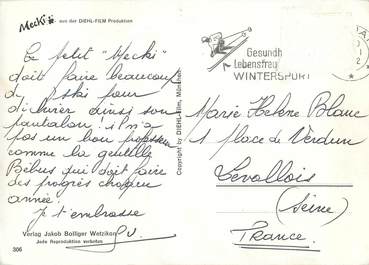 Mecki aus der DIEHL-FILM Produktion
Le petit "Mecki"
doit faire beaucoup
de ski pour
déchirer ainsi son
pantalon. il n'a
pas un bon professeur
comme la gentille
Bébus qui doit faire
des progrès chaque
année.
Je t'embrasse
Verlag Jakob Bolliger Wetzikon
Jede Reproduktion verboten
306
Copyright by DIEHL-Film, München
Gesundh
Lebensfreu
WINTERSPORT
Marie Hélène Blanc
1 place de Verdun
Levallois
(Seine)
France.